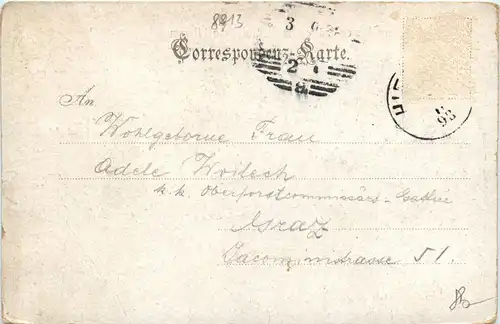 8913
3
Correspondenz-Karte.
2
8
98
An
Wohlgeborne Frau
Adele Woitech
k. k. Oberforstcommissärs-Gattin
Graz
Jacominstrasse 51.